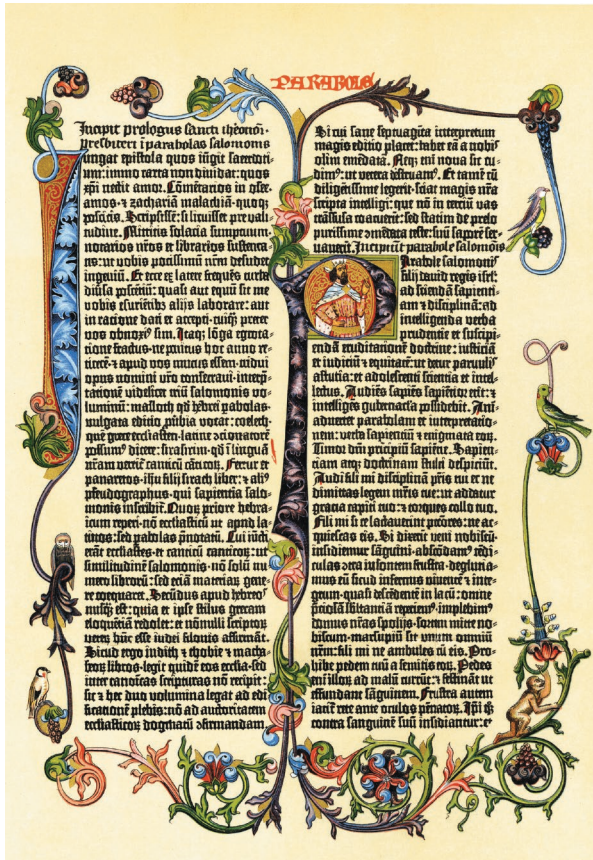 PARABOLE
Incipit prologus sancti iheronimi
presbiteri in parabolas salomonis
Iungat epistola quos iūgit sacerdoti-
um: immo carta non diuidat: quos
xp̄i nectit amor. Cōmētarios in osee.
amos. ⁊ zachariā malachiā· quoq
poscitis. Scripsissē: si licuisset pre vali-
tudine. Mittitis solacia sumptuum.
notarios nr̄os et librarios sustenta-
tis: ut vobis potissimū nr̄m desudet
ingeniū. Et ecce ex latere frequēs turba
diūsa poscētiū: quasi aut equū sit me
vobis esuriētibꝫ alijs laborare: aut
in ratione dati et accepti· cuiꝗ̄ preter
vos obnoxiꝰ sim. Itaqꝫ lōga egrota-
tione fractus· ne penitus hoc anno re-
ticerē· ⁊ apud vos mutus essem· tridui
opus nomini vr̄o consecraui· interp̄-
tationē videlicet triū salomonis vo-
luminū: masloth qd̄ hebrei pabolas·
vulgata editio ꝓūbia vocat: coeleth·
quē grece ecclesiasten· latine ↄcionatorē
possumꝰ dicere: sirasirim· qd̄ ī linguā
nr̄am vertit canticū cāticoꝝ. Fertur et
panaretos· ihū filij sirach liber: ⁊ aliꝰ
pseudographus· qui sapientia salo-
monis inscribit̄. Quoꝝ priorē hebra-
icum reperi· nō ecclesiasticū ut apud la-
tinos: sed pabolas p̄notatū. Cui iūcti
erāt ecclesiastes· et canticū canticoꝝ: ut
similitudinē salomonis· nō solū nu-
mero libroꝝ: sed etiā materiaꝝ gene-
re coequaret. Secūdus apud hebreos
nusꝗ̄ est: quia et ipse stilus grecam
eloquētiā redolet: et nōnulli scriptoꝝ
veteꝝ hūc esse iudei filonis affirmāt.
Sicud ergo iudith ⁊ thobie ⁊ macha-
beoꝝ libros· legit quidē eos ecclesia· sed
inter canonicas scripturas nō recipit:
sic ⁊ hec duo volumina legat ad edi-
ficationē plebis: nō ad auctoritatem
ecclesiasticoꝝ dogmatū ↄfirmandam.
Si cui sane septuaginta interpretum
magis editio placet: habet eā a nobis
olim emēdatā. Neqꝫ eni̅ noua sic cu-
dimꝰ: ut vetera destruamꝰ. Et tamē cū
diligentissime legerit· sciat magis nr̄a
scripta intelligi: que nō in terciū vas
trāsfusa coacuerīt: sed statim de prelo
purissime ↄmēdata teste: suū saporē ser-
uauerit. Incipiunt parabole salomonis
Parabole salomonis
filij dauid regis isrl̄:
ad sciendā sapienti-
am ⁊ disciplinā: ad
intelligenda verba
prudentie et suscipi-
endā eruditationē doctrine: iusticiā
et iudiciū ⁊ equitatē: ut detur paruulis
astutia: et adolescenti scientia et intel-
lectus. Audiēs sapiēs sapiētior erit: ⁊
intelligēs gubernacla possidebit. Ani-
aduertet parabolam et interpretatio-
nem: verba sapientiū ⁊ enigmata eoꝝ.
Timor dn̄i principiū sapiētie. Sapien-
ciam atqꝫ doctrinam stulti despiciūt.
Audi fili mi disciplinā pr̄is tui et ne
dimittas legem mr̄is tue: ut addatur
gracia capiti tuo: ⁊ torques collo tuo.
Fili mi si te lactauerint pctōres: ne ac-
quiescas eis. Si dixerit veni nobiscū·
insidiemur sāguini· abscōdamꝰ tēdi-
culas ↄtra insontem frustra· deglutia-
mus eū sicud infernus viuentē ⁊ inte-
grum· quasi descēdentē in lacū: omnē
preciosā substanciā reperiemꝰ· implebimꝰ
domus nr̄as spolijs· sortem mitte no-
biscum· marsupiū sit vnum omniū
nr̄m: fili mi ne ambules cū eis. Pro-
hibe pedem tuū a semitis eoꝝ. Pedes
eni̅ illoꝝ ad malū currūt: ⁊ festināt ut
effundant sāguinem. Frustra autem
iacit̄ rete ante oculos pēnatoꝝ. Ipi̅ qꝫ
contra sanguinē suū insidiantur: et